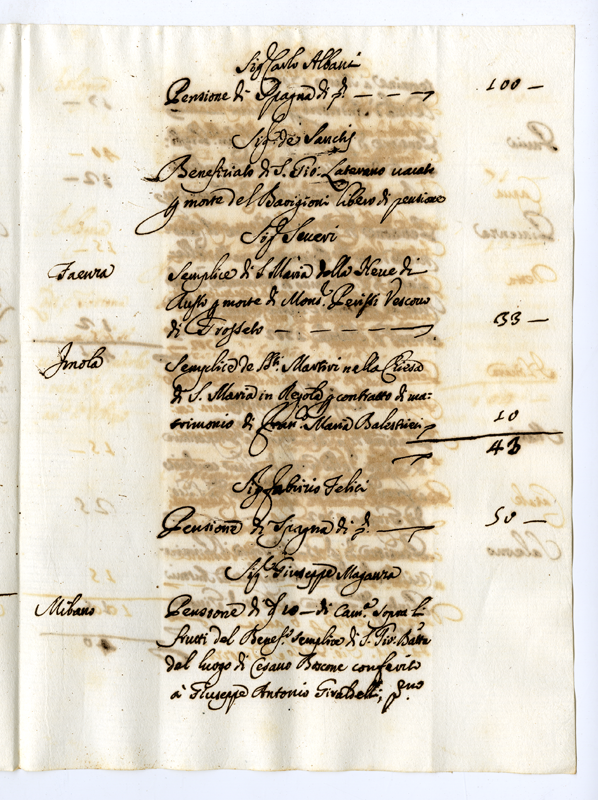 Sig.r Carlo Albani
Pensione di Spagna di p.di — — — 100 —
Sig.r de Sanctis
Beneficiato di S. Gio: Laterano vacato
p morte del Bavigioni libero di pensione
Sig.r Severi
Faenza Semplice di S. Maria della Neve di
p morte di Mons.r Vescovo
di — . — — — 33 —
Imola Semplice de SS.ti Martiri nella Chiesa
di S. Maria in Regola p contratto di ma:
trimonio di Fran.co Maria Balestrieri 10
43
Sig.r Fabrizio Felici
Pensione di Spagna di p.di — 50 —
Sig.r Giuseppe Maganza
Milano Pensione di 40 — di Cam.a sopra li
frutti del Benef.o semplice di S. Gio: Batta
del luogo di Cesano Boscone conferito
à Giuseppe Antonio Giraldelli,